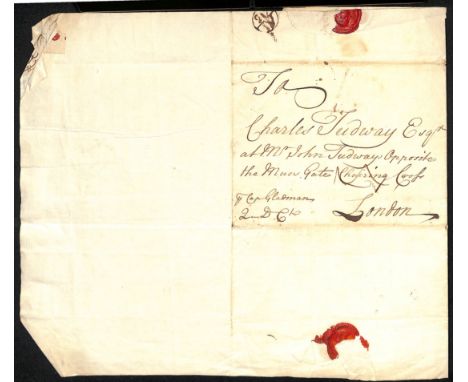 To
Charles Tudway Esqr
at Mr John Tudways Opposite
the Mues Gate Chering Cross
London